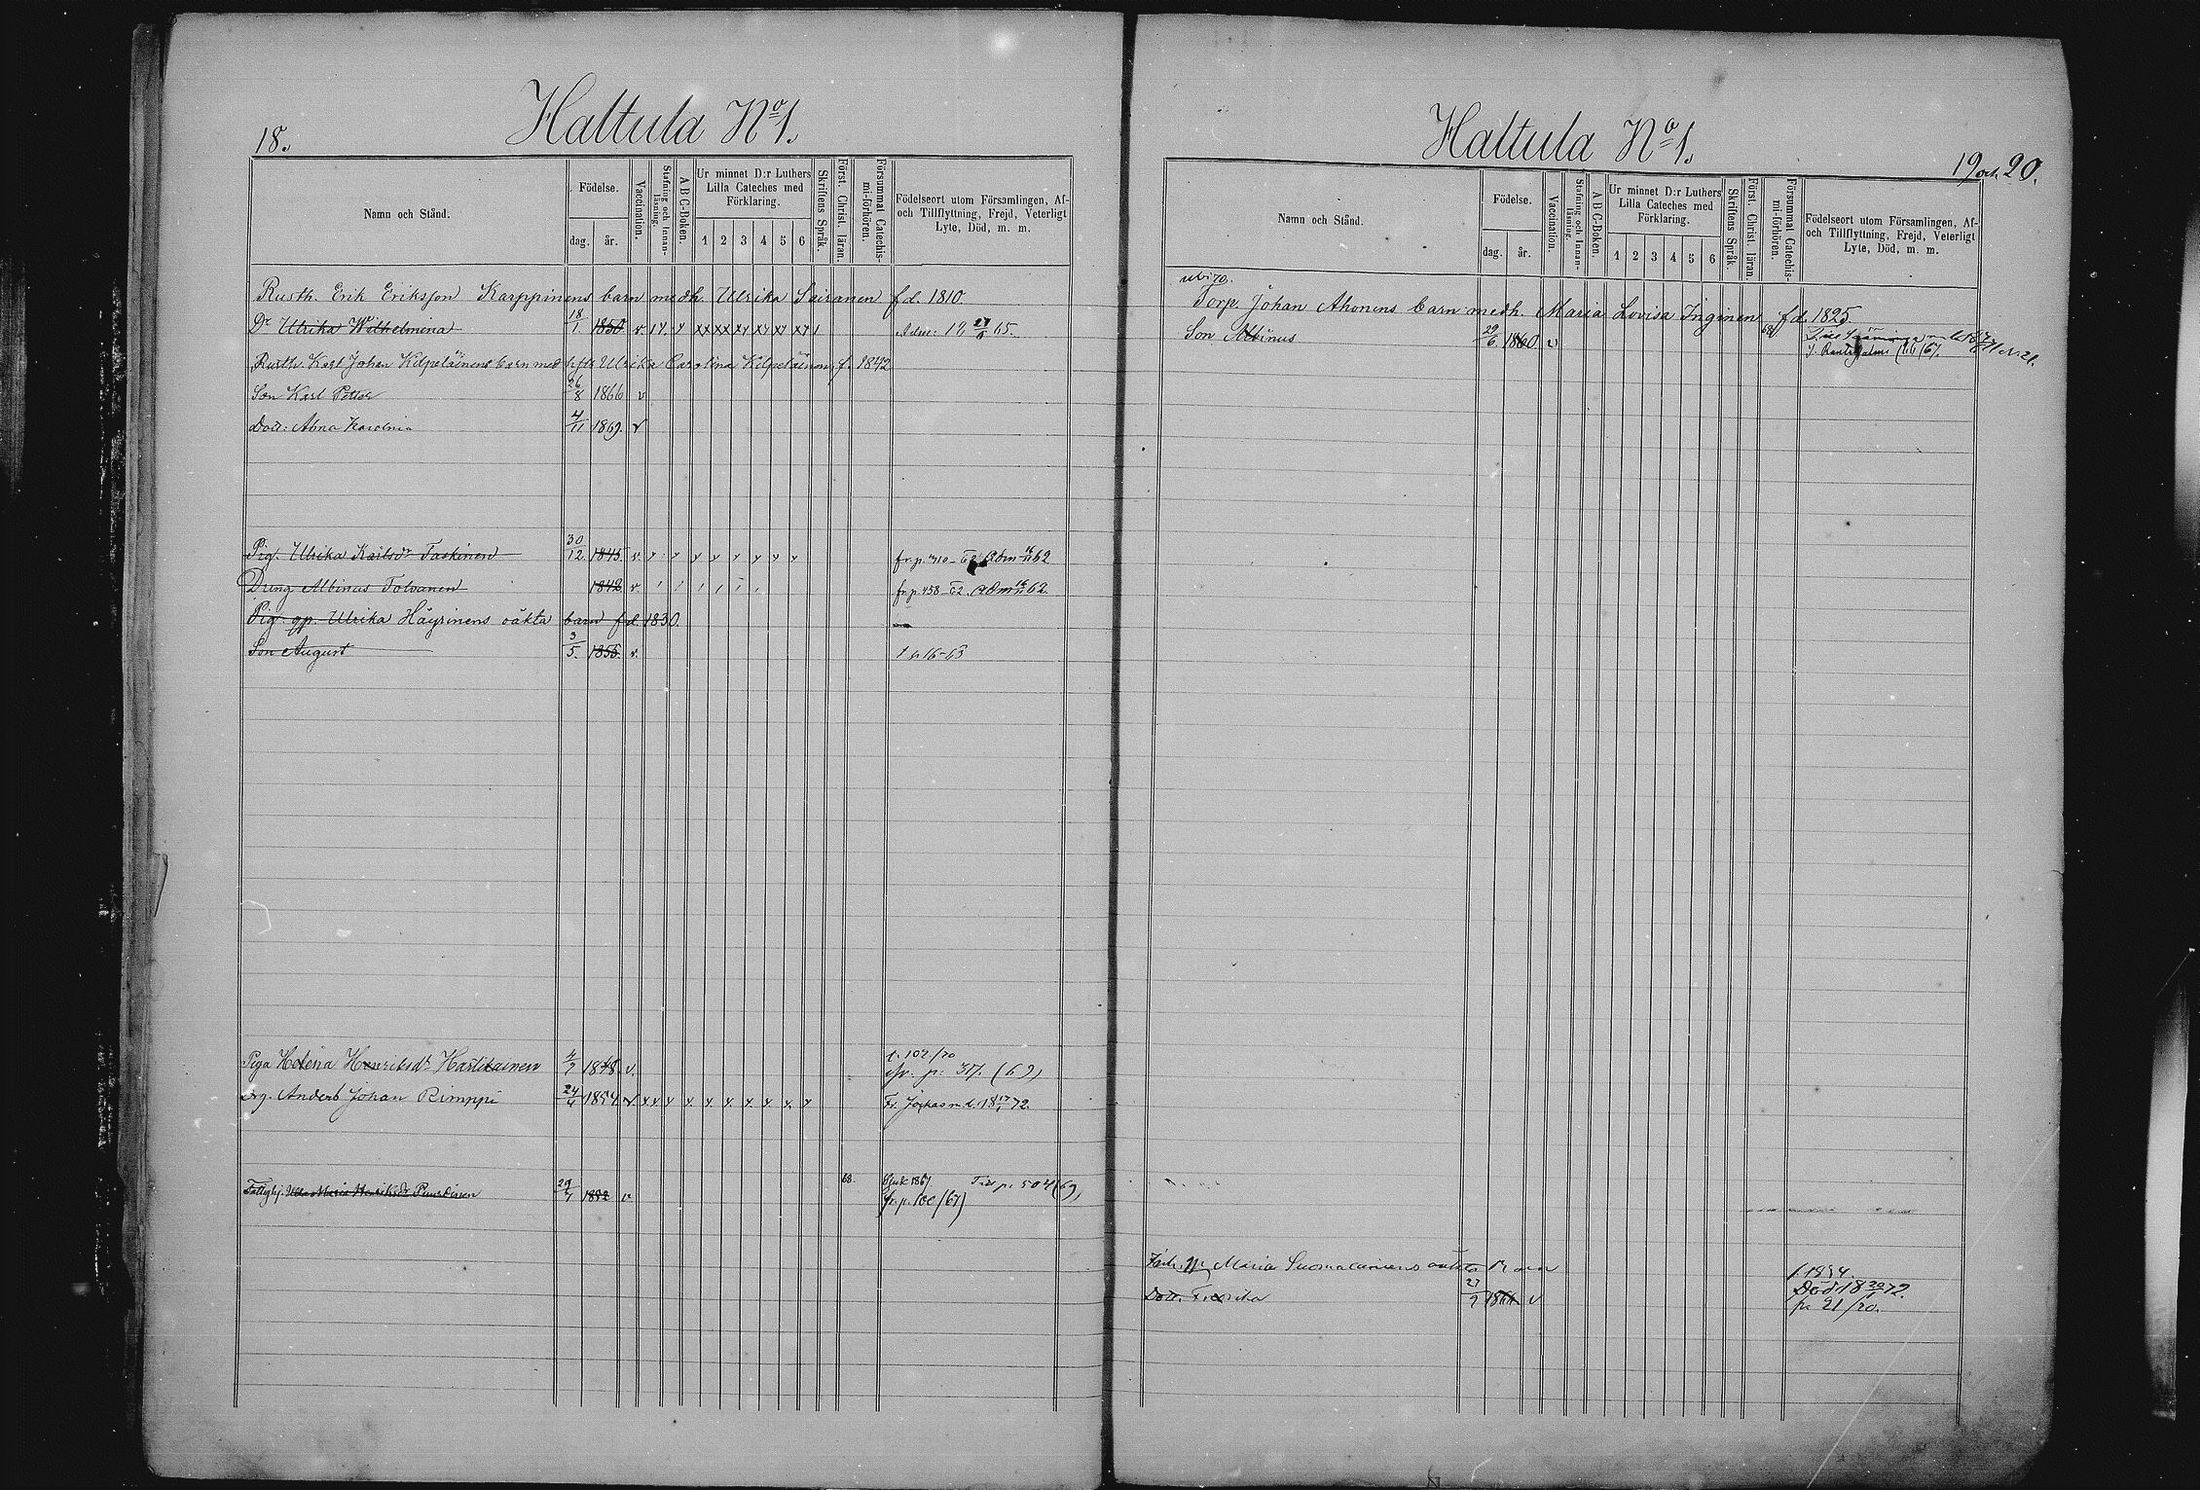 18.
Haltula No 1.
Namn och Stånd.
Födelse.
dag. år.
Vaccination.
Stafning och Innanläsning.
A B C-Boken.
Ur minnet D:r Luthers Lilla Cateches med Förklaring.
1 2 3 4 5 6
Skriftens Språk.
Först. Christ. läran.
Försummat Catechismi-förhören.
Födelseort utom Församlingen, Af- och Tillflyttning, Frejd, Veterligt Lyte, Död, m. m.
Rusth. Erik Eriksson Karppinens barn medh. Ulrika Sairanen f d. 1810
Dr Ulrika Wilhelmina 18/1 1850 v.
Rusth. Karl Johan Kilpeläinens barn med h. Ulrika Carolina Kilpeläinen, f. 1842
Son Karl Petter 26/8 1866 v
Dott: Anna Karolina 4/11 1869. v
Pig. Ulrika Karlsdr Taskinen 30/12. 1845. v
Dräng Albinus Tolvanen 1842 v fr. p. 458-62.
Pig. gp. Ulrika Häyrinens oäkta barn f d. 1830.
Son August 3/5. 1855. v. t p 16-63
Piga Helena Henriksdr Hartikainen 4/7 1848. v. t. 102/70
p: 317. (69)
Drg. Anders Johan Rimppi 24/4 1854 v Fr. Jockas m. d. 18 17/1 72.
Maria Henriksdr 29/7 1852 v 68. Sjuk 1867 p. 504 (69)
fr. p. 100/(67)
Haltula No 1.
19 och 20.
Namn och Stånd.
Födelse.
dag. år.
Vaccination.
Stafning och Innanläsning.
A B C-Boken.
Ur minnet D:r Luthers Lilla Cateches med Förklaring.
1 2 3 4 5 6
Skriftens Språk.
Först. Christ. läran.
Försummat Catechismi-förhören.
Födelseort utom Församlingen, Af- och Tillflyttning, Frejd, Veterligt Lyte, Död, m. m.
Torp. Johan Ahonens barn medh. Maria Lovisa Inginen f d. 1825
Son Albinus 29/6. 1860 v 68
Maria Suomalainens oäkta barn f. 1834.
Dott. Fredrika 27/9 1866. v Död 18 20/1 72.
p. 21/70.